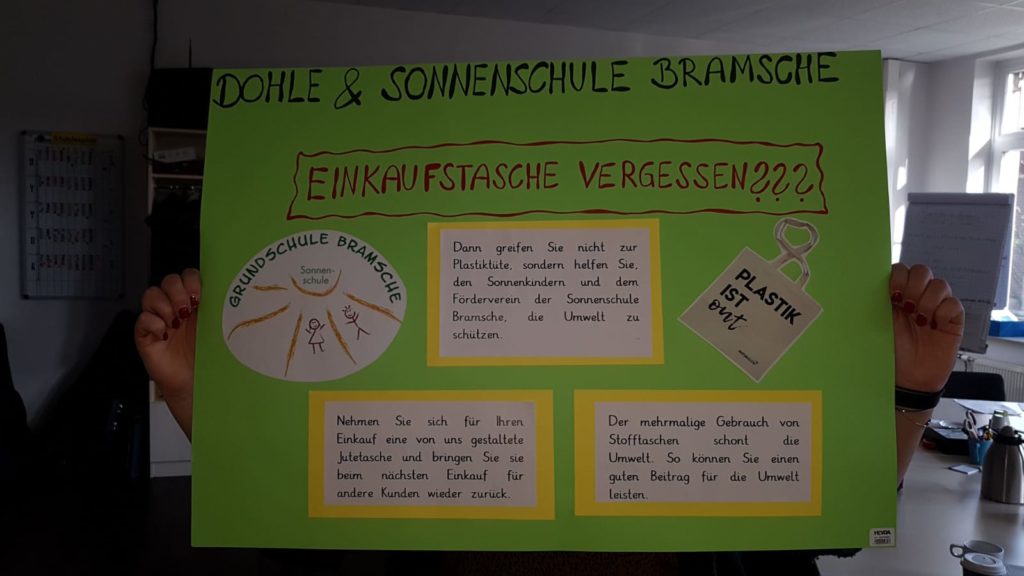 DOHLE & SONNENSCHULE BRAMSCHE
EINKAUFSTASCHE VERGESSEN???
GRUNDSCHULE BRAMSCHE
Sonnen-
schule
Dann greifen Sie nicht zur
Plastiktüte, sondern helfen Sie,
den Sonnenkindern und dem
Förderverein der Sonnenschule
Bramsche, die Umwelt zu
schützen.
PLASTIK
IST
out
Nehmen Sie sich für Ihren
Einkauf eine von uns gestaltete
Jutetasche und bringen Sie sie
beim nächsten Einkauf für
andere Kunden wieder zurück.
Der mehrmalige Gebrauch von
Stofftaschen schont die
Umwelt. So können Sie einen
guten Beitrag für die Umwelt
leisten.
HEYDA